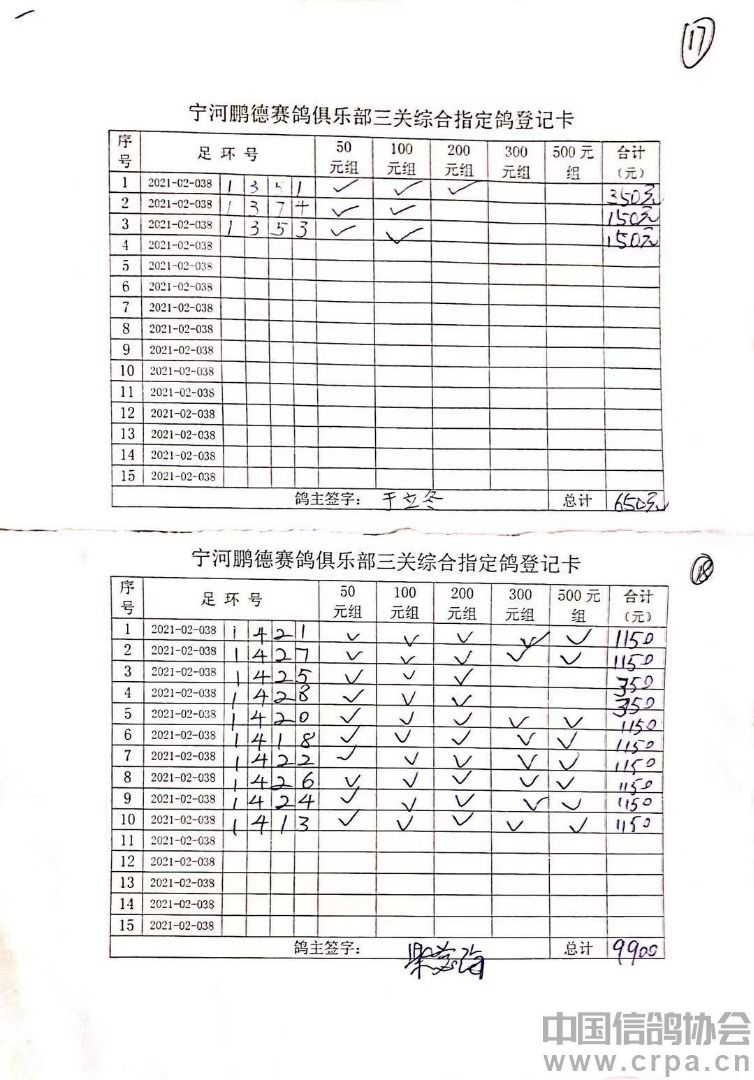 17
宁河鹏德赛鸽俱乐部三关综合指定鸽登记卡
序号 足环号 50元组 100元组 200元组 300元组 500元组 合计(元)
1 2021-02-038 1351 ✓ ✓ ✓ 350元
2 2021-02-038 1374 ✓ ✓ 150元
3 2021-02-038 1353 ✓ ✓ 150元
4 2021-02-038
5 2021-02-038
6 2021-02-038
7 2021-02-038
8 2021-02-038
9 2021-02-038
10 2021-02-038
11 2021-02-038
12 2021-02-038
13 2021-02-038
14 2021-02-038
15 2021-02-038
鸽主签字: 于立冬 总计 650元
宁河鹏德赛鸽俱乐部三关综合指定鸽登记卡
18
序号 足环号 50元组 100元组 200元组 300元组 500元组 合计(元)
1 2021-02-038 1421 ✓ ✓ ✓ ✓ ✓ 1150
2 2021-02-038 1427 ✓ ✓ ✓ ✓ ✓ 1150
3 2021-02-038 1425 ✓ ✓ ✓ 350
4 2021-02-038 1428 ✓ ✓ ✓ 350
5 2021-02-038 1420 ✓ ✓ ✓ ✓ ✓ 1150
6 2021-02-038 1418 ✓ ✓ ✓ ✓ ✓ 1150
7 2021-02-038 1422 ✓ ✓ ✓ ✓ ✓ 1150
8 2021-02-038 1426 ✓ ✓ ✓ ✓ ✓ 1150
9 2021-02-038 1424 ✓ ✓ ✓ ✓ ✓ 1150
10 2021-02-038 1413 ✓ ✓ ✓ ✓ ✓ 1150
11 2021-02-038
12 2021-02-038
13 2021-02-038
14 2021-02-038
15 2021-02-038
鸽主签字: 总计 9900
中国信鸽协会
www.crpa.cn